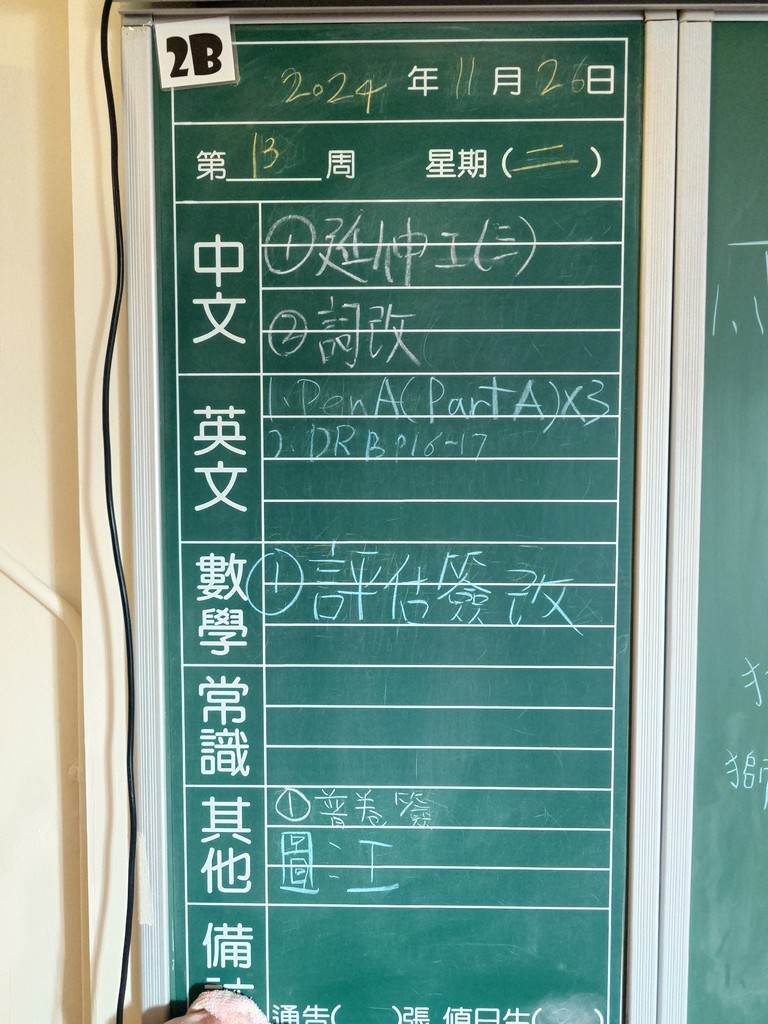 2B
2024年11月26日
第13周 星期(二)
中文
①延伸工(三)
②詞改
英文
1. Pen A(Part A)x3
2. DRB P16-17
數學
①評估簽改
常識
其他
①普卷簽
圖:工
備
通告( )張 值日生( )